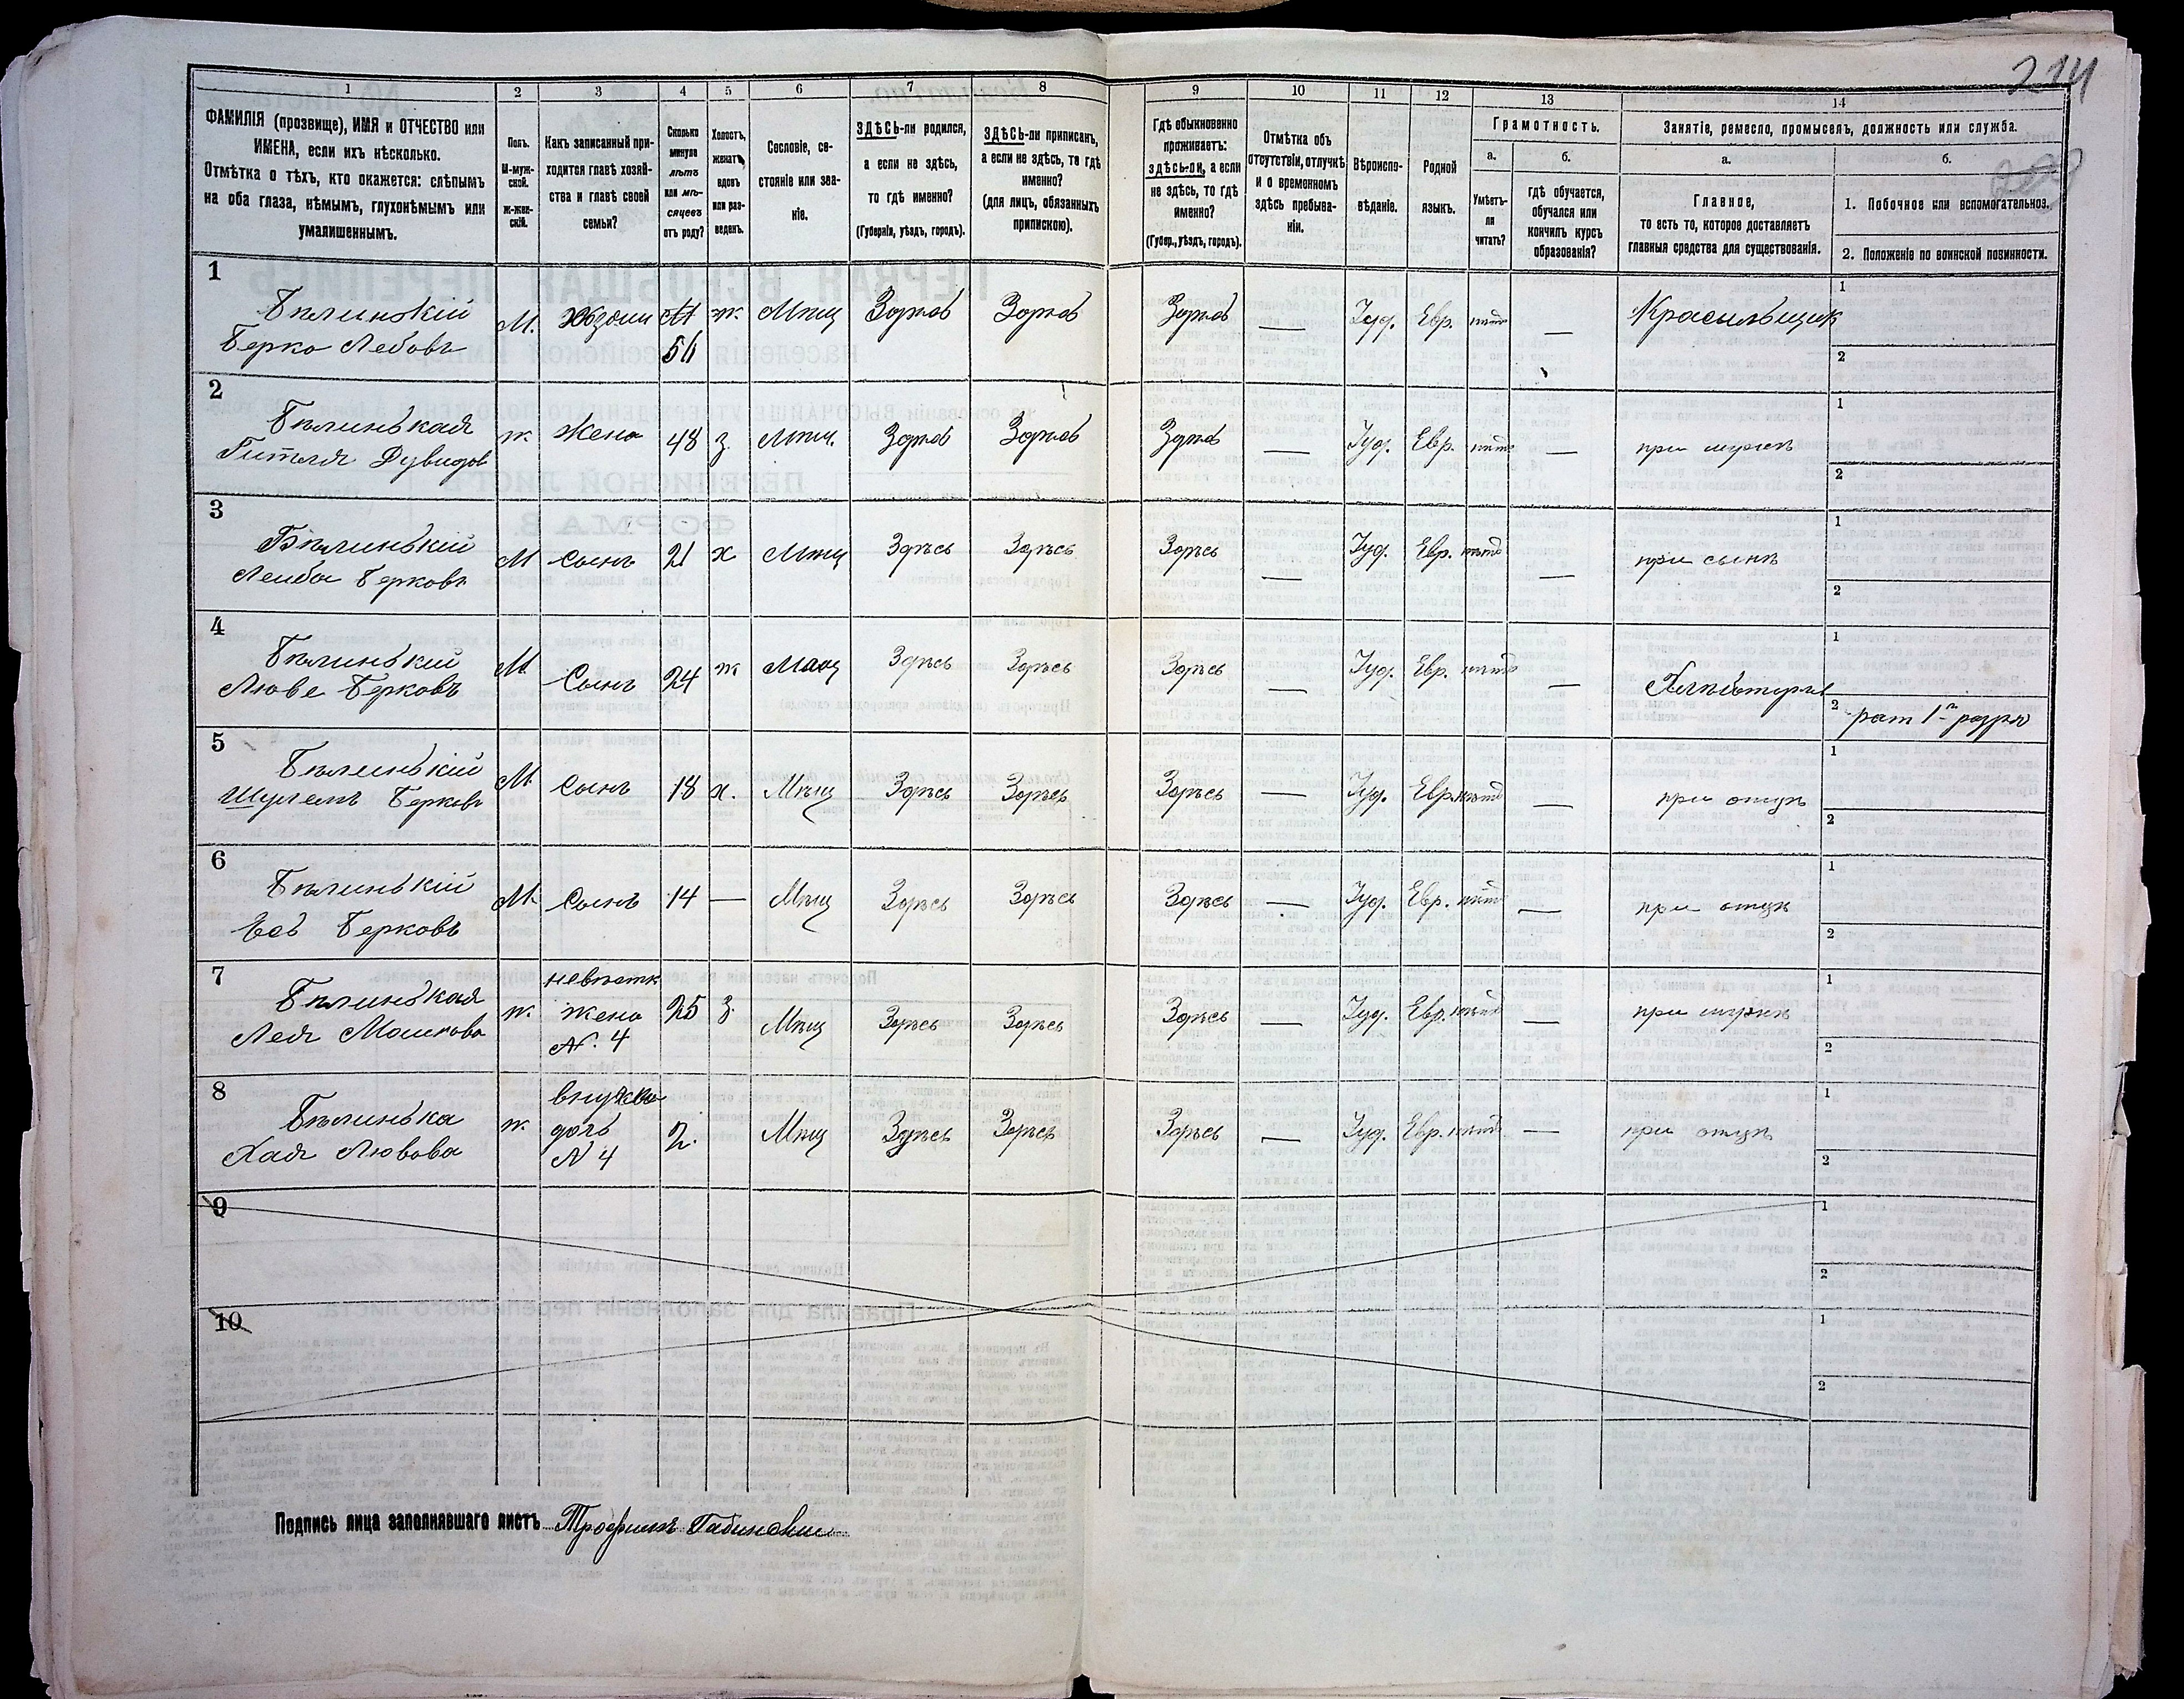 214
200
1
2
3
4
5
6
7
8
9
10
11
12
13
14
ФАМИЛІЯ (прозвище), ИМЯ и ОТЧЕСТВО или
ИМЕНА, если ихъ нѣсколько.
Отмѣтка о тѣхъ, кто окажется: слѣпымъ
на оба глаза, нѣмымъ, глухонѣмымъ или
умалишеннымъ.
Полъ.
М-муж-
ской.
ж-жен-
скій.
Какъ записанный при-
ходится главѣ хозяй-
ства и главѣ своей
семьи?
Сколько
минуло
лѣтъ
или мѣ-
сяцевъ
отъ роду?
Холостъ,
женатъ,
вдовъ
или раз-
веденъ.
Сословіе, со-
стояніе или зва-
ніе.
ЗДѢСЬ-ли родился,
а если не здѣсь,
то гдѣ именно?
(Губернія, уѣздъ, городъ).
ЗДѢСЬ-ли приписанъ,
а если не здѣсь, то гдѣ
именно?
(для лицъ, обязанныхъ
припискою).
Гдѣ обыкновенно
проживаетъ:
здѣсь-ли, а если
не здѣсь, то гдѣ
именно?
(Губер., уѣздъ, городъ).
Отмѣтка объ
отсутствіи, отлучкѣ
и о временномъ
здѣсь пребыва-
ніи.
Вѣроиспо-
вѣданіе.
Родной
языкъ.
Грамотность.
а.
б.
Умѣетъ-
ли
читать?
гдѣ обучается,
обучался или
кончилъ курсъ
образованія?
Занятіе, ремесло, промыселъ, должность или служба.
а.
б.
Главное,
то есть то, которое доставляетъ
главныя средства для существованія.
1. Побочное или вспомогательное.
2. Положеніе по воинской повинности.
1
Бѣлинькій
Берко Лебовъ
М.
хозяин
56
ж
Мѣщ
Здѣсь
Здѣсь
Здѣсь
—
Іуд.
Евр.
нѣтъ
—
Красильщик
1
2
2
Бѣлинькая
Гитля Дувидов
ж
Жена
48
з.
Мѣщ.
Здѣсь
Здѣсь
Здѣсь
—
Іуд.
Евр.
нѣтъ
—
при мужѣ
1
2
3
Бѣлинькій
Лейба Берковъ
М
Сынъ
21
х
Мѣщ
Здѣсь
Здѣсь
Здѣсь
—
Іуд.
Евр.
нѣтъ
—
при сынѣ
1
2
4
Бѣлинькій
Лювe Берковъ
М
Сынъ
24
ж
Мѣщ
Здѣсь
Здѣсь
Здѣсь
—
Іуд.
Евр.
нѣтъ
—
1
2
рат 1го разря
5
Бѣлинькій
Шулемъ Берковъ
М
Сынъ
18
х.
Мѣщ
Здѣсь
Здѣсь
Здѣсь
—
Іуд.
Евр.
нѣтъ
—
при отцѣ
1
2
6
Бѣлинькій
Есь Берковъ
М
Сынъ
14
—
Мѣщ
Здѣсь
Здѣсь
Здѣсь
—
Іуд.
Евр.
нѣтъ
—
при отцѣ
1
2
7
Бѣлинькая
Лея Мошкова
ж.
невѣстк
жена
N. 4
25
з.
Мѣщ
Здѣсь
Здѣсь
Здѣсь
—
Іуд.
Евр.
нѣтъ
—
при мужѣ
1
2
8
Бѣлинька
Хая Лювова
ж.
внучка
дочь
N 4
2.
Мѣщ
Здѣсь
Здѣсь
Здѣсь
—
Іуд.
Евр.
нѣтъ
—
при отцѣ
1
2
9
1
2
10
1
2
Подпись лица заполнявшаго листъ Трофимъ